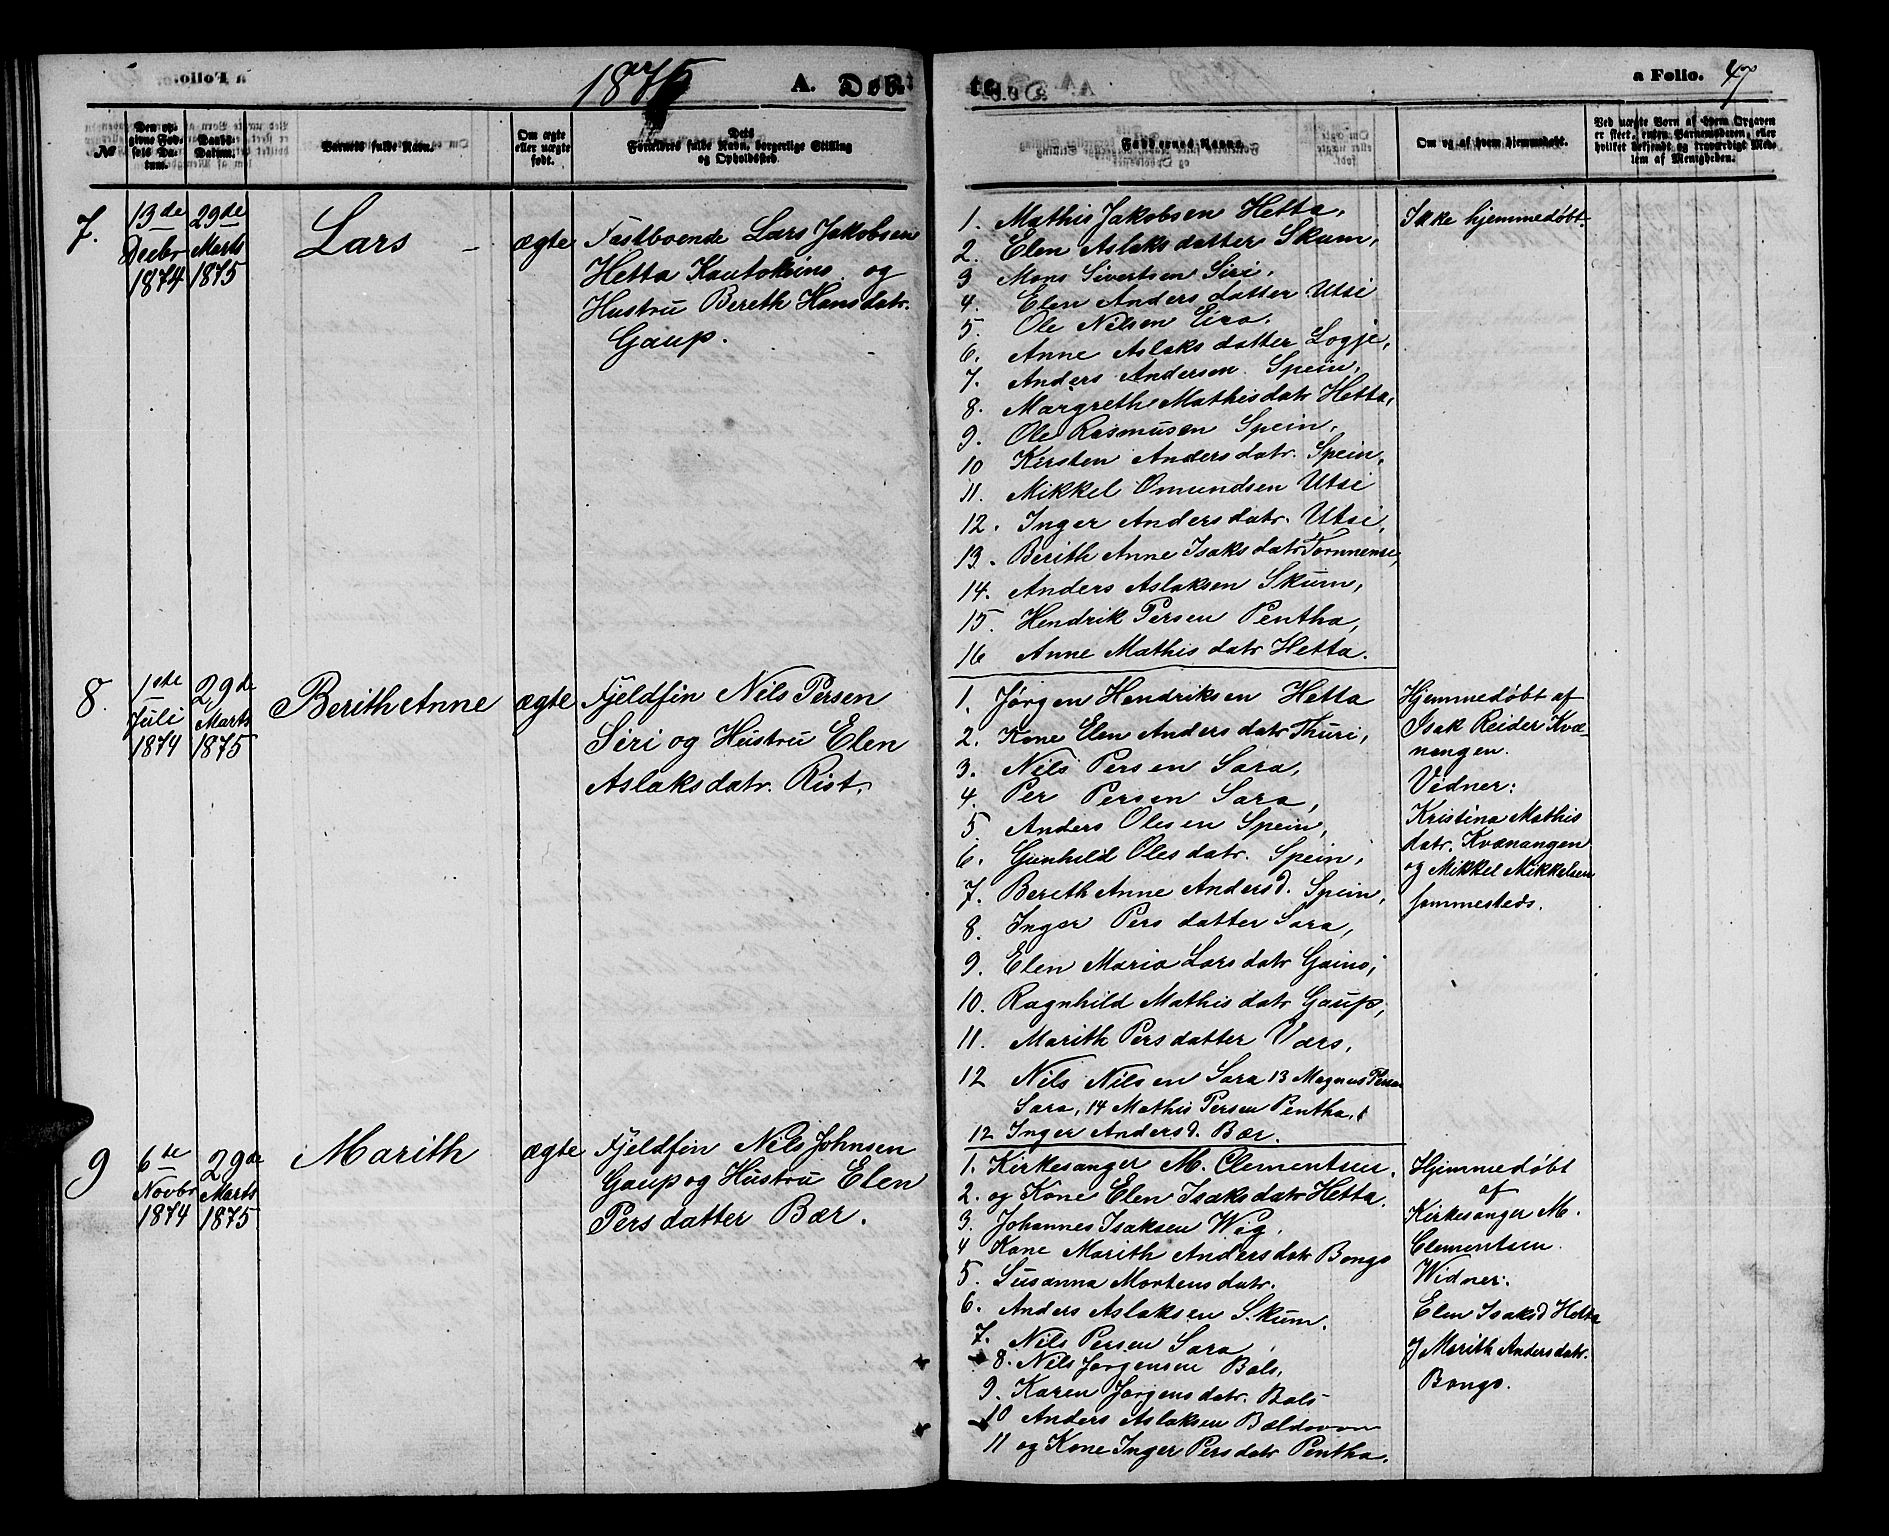 1875
A. Døb-
te.
a Folio. 47
№
Den op-
givne Fød-
sels Da-
tum.
Daabs-
Datum.
Barnets fulde Navn.
Om ægte
eller uægte
født.
Dets
Forældres fulde Navn, borgerlige Stilling
og Opholdssted.
Faddernes Navne.
Om og af hvem hjemmedøbt.
Ved uægte Børn af hvem Opgaven
er skeet, enten Barnemoderen, eller
hvilket bekjendt og troværdigt Med-
lem af Menigheden.
7.
13de
Decbr
1874
29de
Marts
1875
Lars
ægte
Fastboende Lars Jakobsen
Hetta Kautokeino og
Hustru Bereth Hansdatr.
Gaup.
1. Mathis Jakobsen Hetta,
2. Elen Aslaksdatter Skum,
3 Mons Sivertsen Siri,
4. Elen Andersdatter Utsi
5. Ole Nilsen Eira.
6. Anne Aslaksdatter Logje,
7. Anders Andersen Spein,
8. Margreth Mathisdatr Hetta,
9. Ole Rasmusen Spein,
10 Kirsten Andersdatr. Spein,
11. Mikkel Omundsen Utsi
12. Inger Andersdatr. Utsi,
13. Berith Anne Isaksdatr Tornnense,
14. Anders Aslaksen Skum,
15. Hendrik Persen Pentha,
16 Anne Mathisdatr Hetta.
Ikke hjemmedøbt.
8.
1ste
Juli
1874
29de
Marts
1875
Berith Anne
ægte
Fjeldfin Nils Persen
Siri og Hustru Elen
Aslaksdatr. Rist.
1. Jørgen Hendriksen Hetta
2. Kone Elen Andersdatr Thuri,
3. Nils Persen Sara,
4. Per Persen Sara,
5. Anders Olesen Spein,
6. Gunhild Olesdatr. Spein,
7. Bereth Anne Andersd. Spein,
8. Inger Persdatter Sara,
9. Elen Maria Larsdatr Gaino,
10. Ragnhild Mathisdatr Gaup,
11. Marith Persdatter Værs,
12 Nils Nilsen Sara 13 Magnus Persen
Sara, 14 Mathis Persen Pentha,
12 Inger Andersd. Bær.
Hjemmedøbt af
Isak Reider Kvæ-
nangen.
Vidner:
Kristina Mathis
datr. Kvænangen
og Mikkel Mikkelsen
sammesteds.
9
6te
Novbr
1874
29de
Marts
1875
Marith
ægte
Fjeldfin Nils Johnsen
Gaup og Hustru Elen
Persdatter Bær.
1. Kirkesanger M. Clementsen.
2. og Kone Elen Isaksdatr Hetta.
3. Johannes Isaksen Wig,
4 Kone Marith Andersdatr Bongo
5. Susanna Mortensdatr.
6. Anders Aslaksen Skum.
7. Nils Persen Sara,
8. Nils Jørgensen Bals,
9. Karen Jørgensdatr. Bals
10 Anders Aslaksen Bældovon
11 og Kone Inger Persdatr Pentha.
Hjemmedøbt
af
Kirkesanger M.
Clementsen.
Widner:
Elen Isaksd Hetta
J Marith Andersdatr.
Bongo.